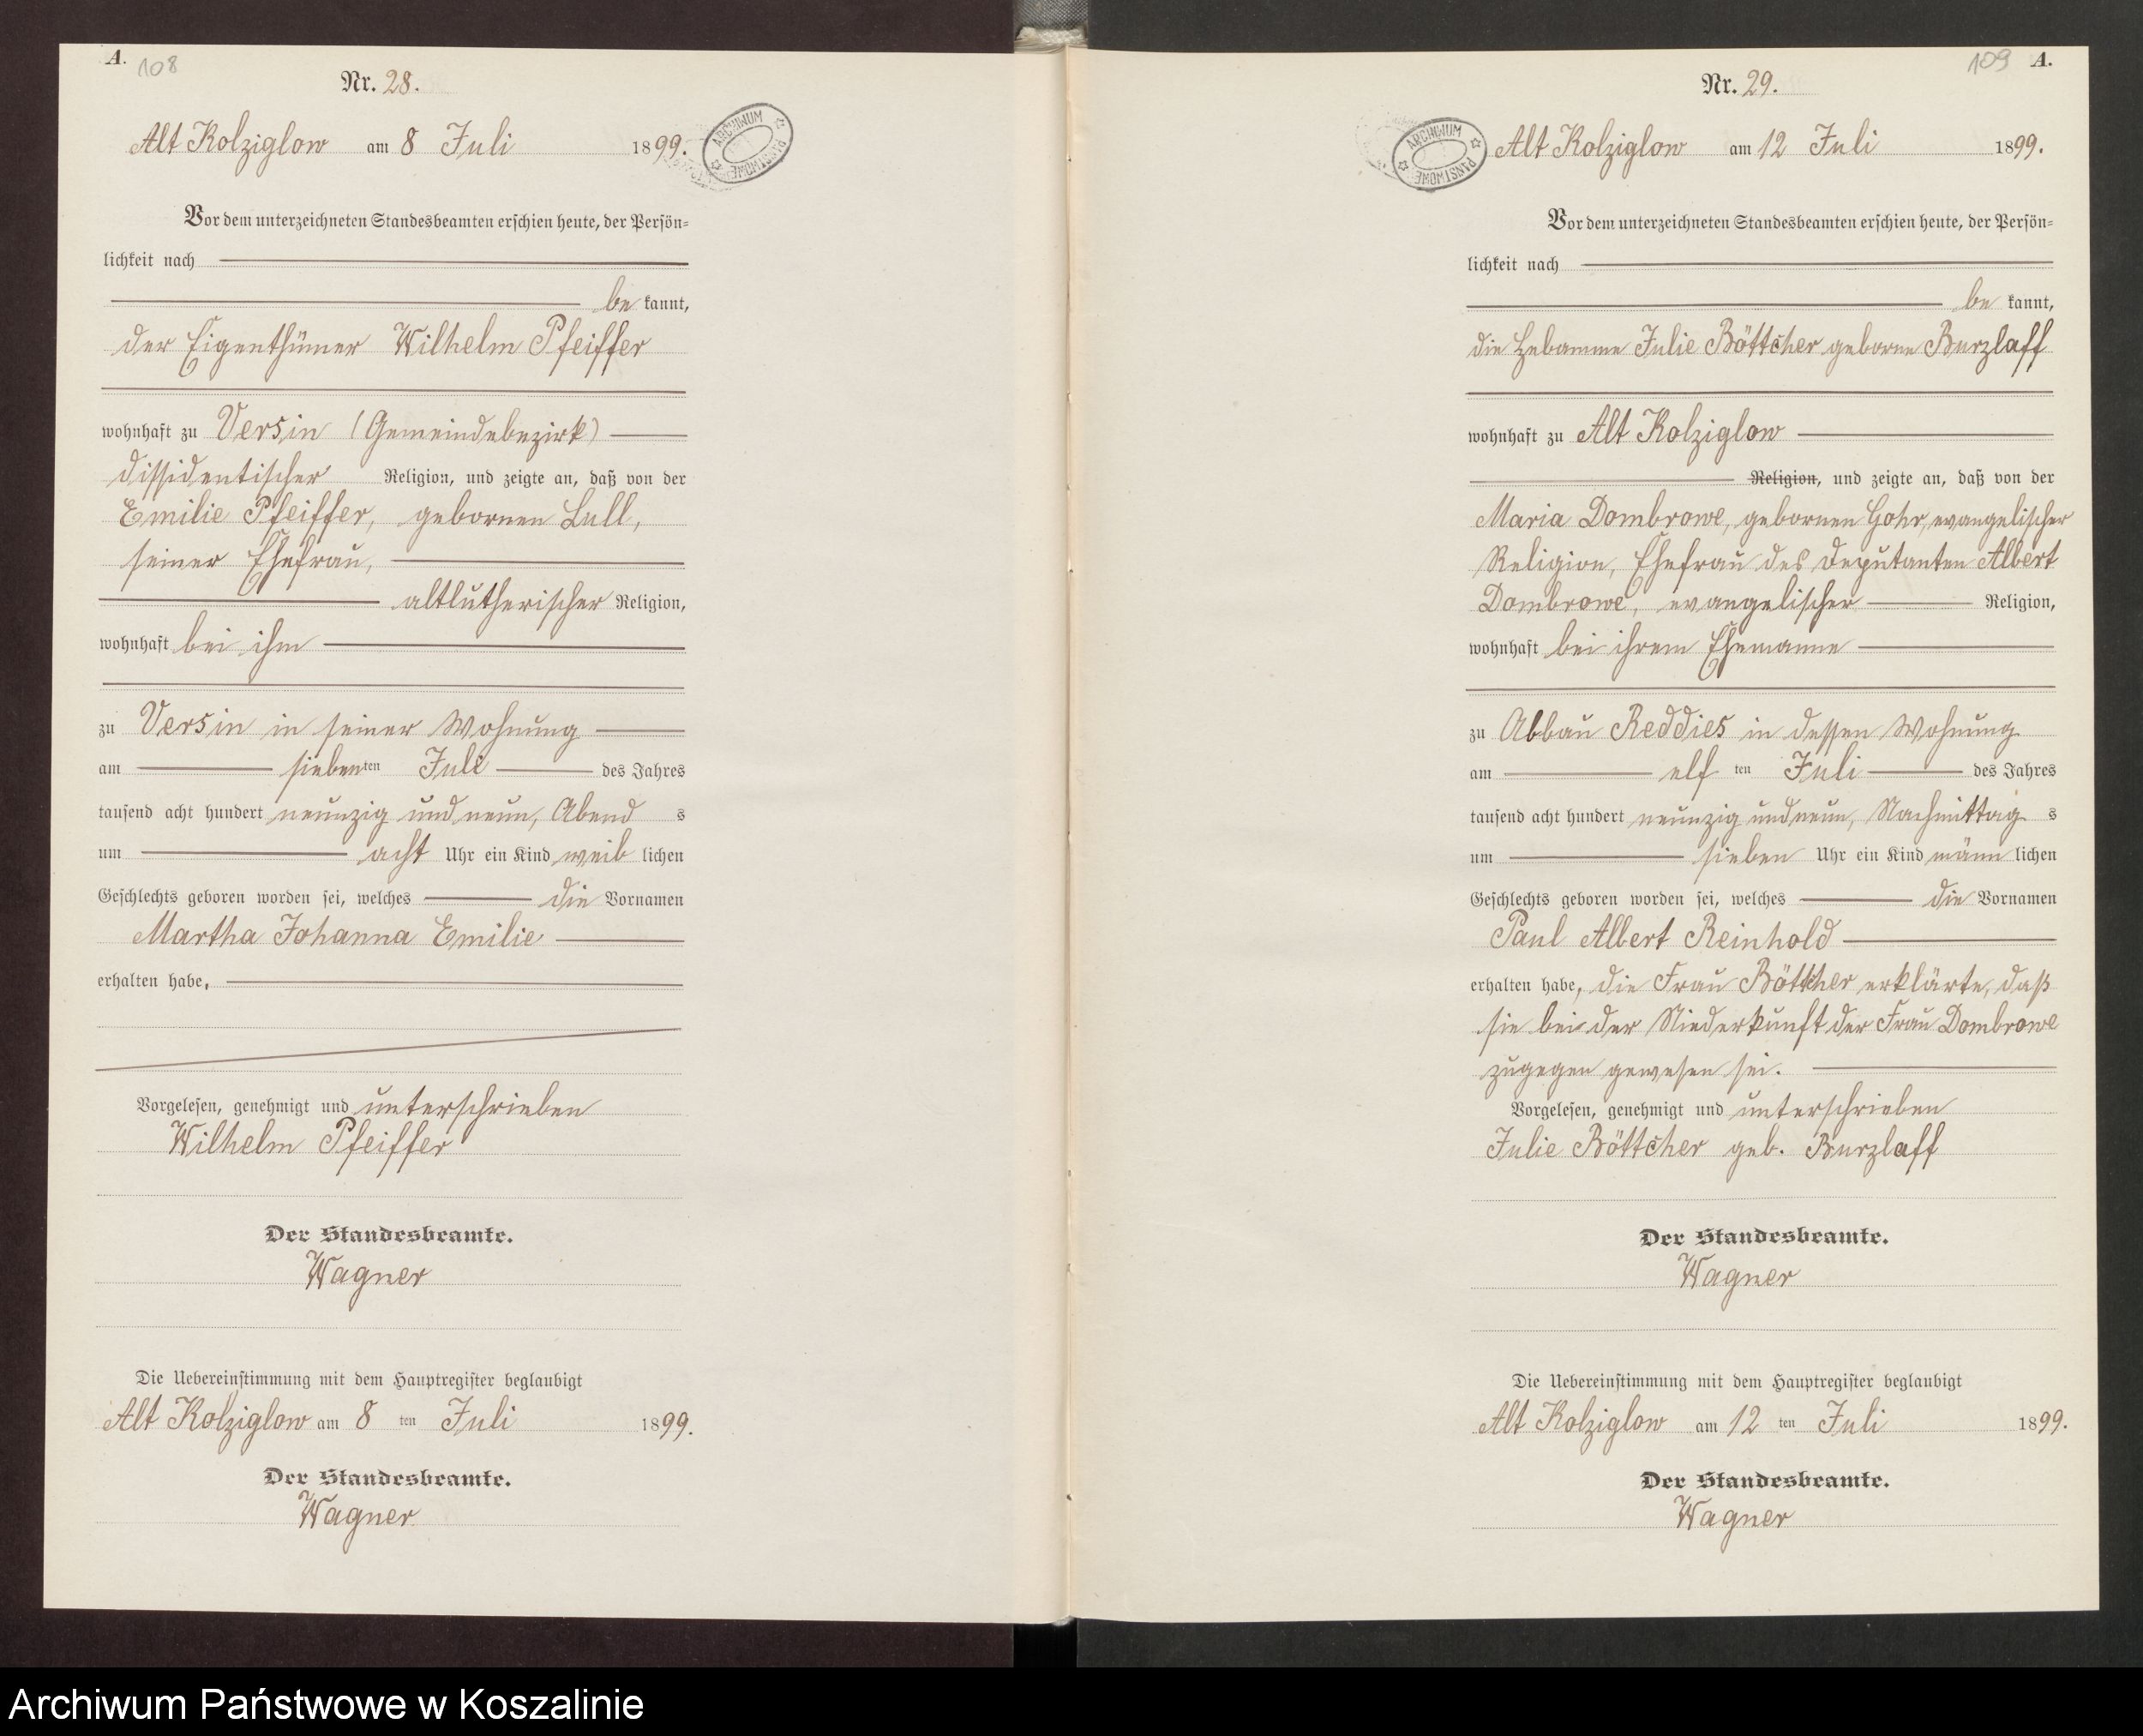 A.
108
Nr. 28.
Alt Kolziglow am 8 Juli 1899.
ARCHIWUM PAŃSTWOWE
Vor dem unterzeichneten Standesbeamten erschien heute, der Persön-
lichkeit nach
be kannt,
der Eigenthümer Wilhelm Pfeiffer
wohnhaft zu Versin (Gemeindebezirk)
dissidentischer Religion, und zeigte an, daß von der
Emilie Pfeiffer, gebornen Lull,
seiner Ehefrau,
altlutherischer Religion,
wohnhaft bei ihm
zu Versin in seiner Wohnung
am siebenten Juli des Jahres
tausend acht hundert neunzig und neun, Abend s
um acht Uhr ein Kind weib lichen
Geschlechts geboren worden sei, welches die Vornamen
Martha Johanna Emilie
erhalten habe,
Vorgelesen, genehmigt und unterschrieben
Wilhelm Pfeiffer
Der Standesbeamte.
Wagner
Die Uebereinstimmung mit dem Hauptregister beglaubigt
Alt Kolziglow am 8 ten Juli 1899.
Der Standesbeamte.
Wagner
109 A.
Nr. 29.
ARCHIWUM PAŃSTWOWE
Alt Kolziglow am 12 Juli 1899.
Vor dem unterzeichneten Standesbeamten erschien heute, der Persön-
lichkeit nach
be kannt,
die Hebamme Julie Böttcher geborne Burzlaff
wohnhaft zu Alt Kolziglow
Religion, und zeigte an, daß von der
Maria Dombrowe, gebornen Gohr, evangelischer
Religion, Ehefrau des Deputanten Albert
Dombrowe, evangelischer Religion,
wohnhaft bei ihrem Ehemanne
zu Abbau Reddies in dessen Wohnung
am elf ten Juli des Jahres
tausend acht hundert neunzig und neun, Nachmittag s
um sieben Uhr ein Kind männ lichen
Geschlechts geboren worden sei, welches die Vornamen
Paul Albert Reinhold
erhalten habe, die Frau Böttcher erklärte, daß
sie bei der Niederkunft der Frau Dombrowe
zugegen gewesen sei.
Vorgelesen, genehmigt und unterschrieben
Julie Böttcher geb. Burzlaff
Der Standesbeamte.
Wagner
Die Uebereinstimmung mit dem Hauptregister beglaubigt
Alt Kolziglow am 12 ten Juli 1899.
Der Standesbeamte.
Wagner
Archiwum Państwowe w Koszalinie